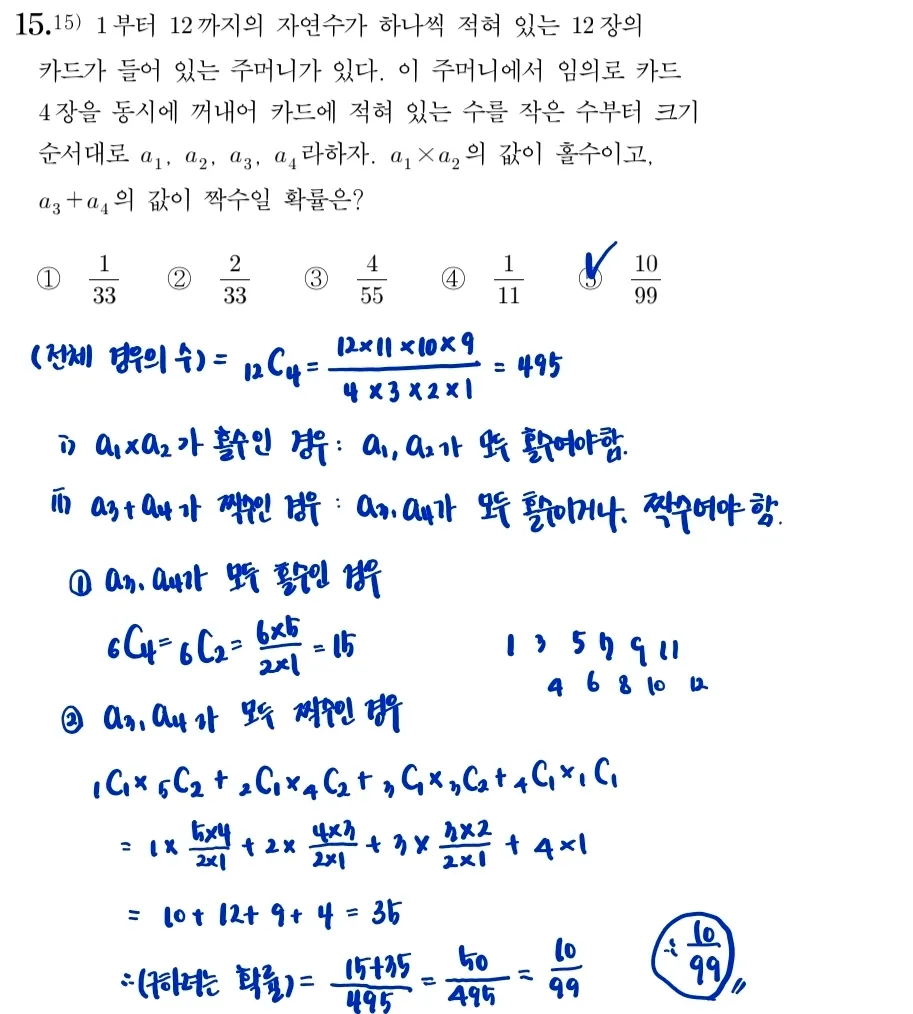 15.15) 1부터 12까지의 자연수가 하나씩 적혀 있는 12장의
카드가 들어 있는 주머니가 있다. 이 주머니에서 임의로 카드
4장을 동시에 꺼내어 카드에 적혀 있는 수를 작은 수부터 크기
순서대로 a₁, a₂, a₃, a₄라하자. a₁×a₂의 값이 홀수이고,
a₃+a₄의 값이 짝수일 확률은?
① 1/33 ② 2/33 ③ 4/55 ④ 1/11 ⑤ 10/99
(전체 경우의 수) = ₁₂C₄ = (12×11×10×9)/(4×3×2×1) = 495
i) a₁×a₂가 홀수인 경우: a₁, a₂가 모두 홀수여야함.
ii) a₃+a₄가 짝수인 경우: a₃, a₄가 모두 홀수이거나, 짝수여야 함.
① a₃, a₄가 모두 홀수인 경우
₆C₄ = ₆C₂ = (6×5)/(2×1) = 15
1 3 5 7 9 11
4 6 8 10 12
② a₃, a₄가 모두 짝수인 경우
₁C₁×₅C₂ + ₂C₁×₄C₂ + ₃C₁×₃C₂ + ₄C₁×₁C₁
= 1×(5×4)/(2×1) + 2×(4×3)/(2×1) + 3×(3×2)/(2×1) + 4×1
= 10+12+9+4 = 35
∴(구하려는 확률) = (15+35)/495 = 50/495 = 10/99
∴ 10/99 〃